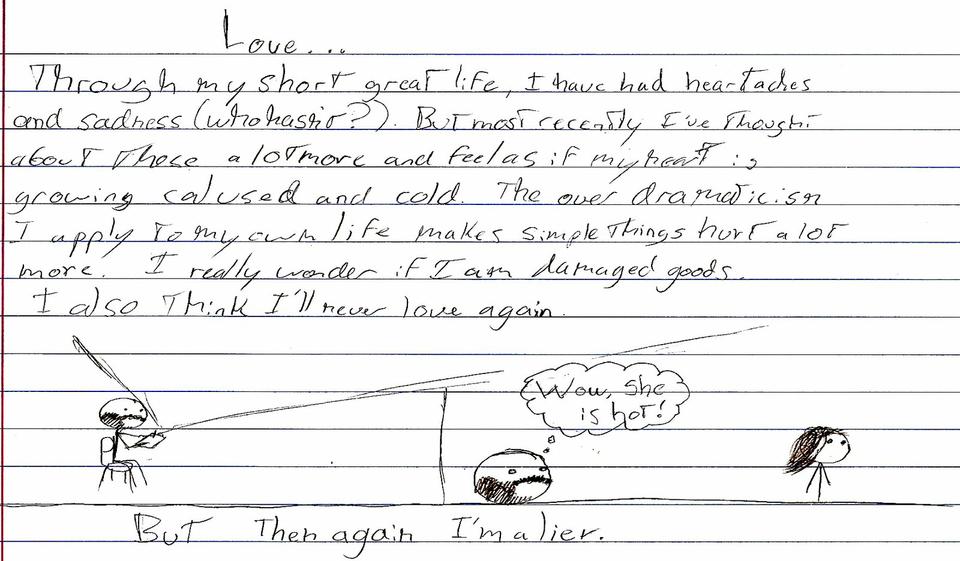 Love...
Through my short great life, I have had heartaches
and sadness (who hasn't?). But most recently I've thought
about those a lot more and feel as if my heart is
growing calused and cold. The over dramaticism
I apply to my own life makes simple things hurt a lot
more. I really wonder if I am damaged goods.
I also think I'll never love again.
Wow, she
is hot!
But then again I'm a lier.